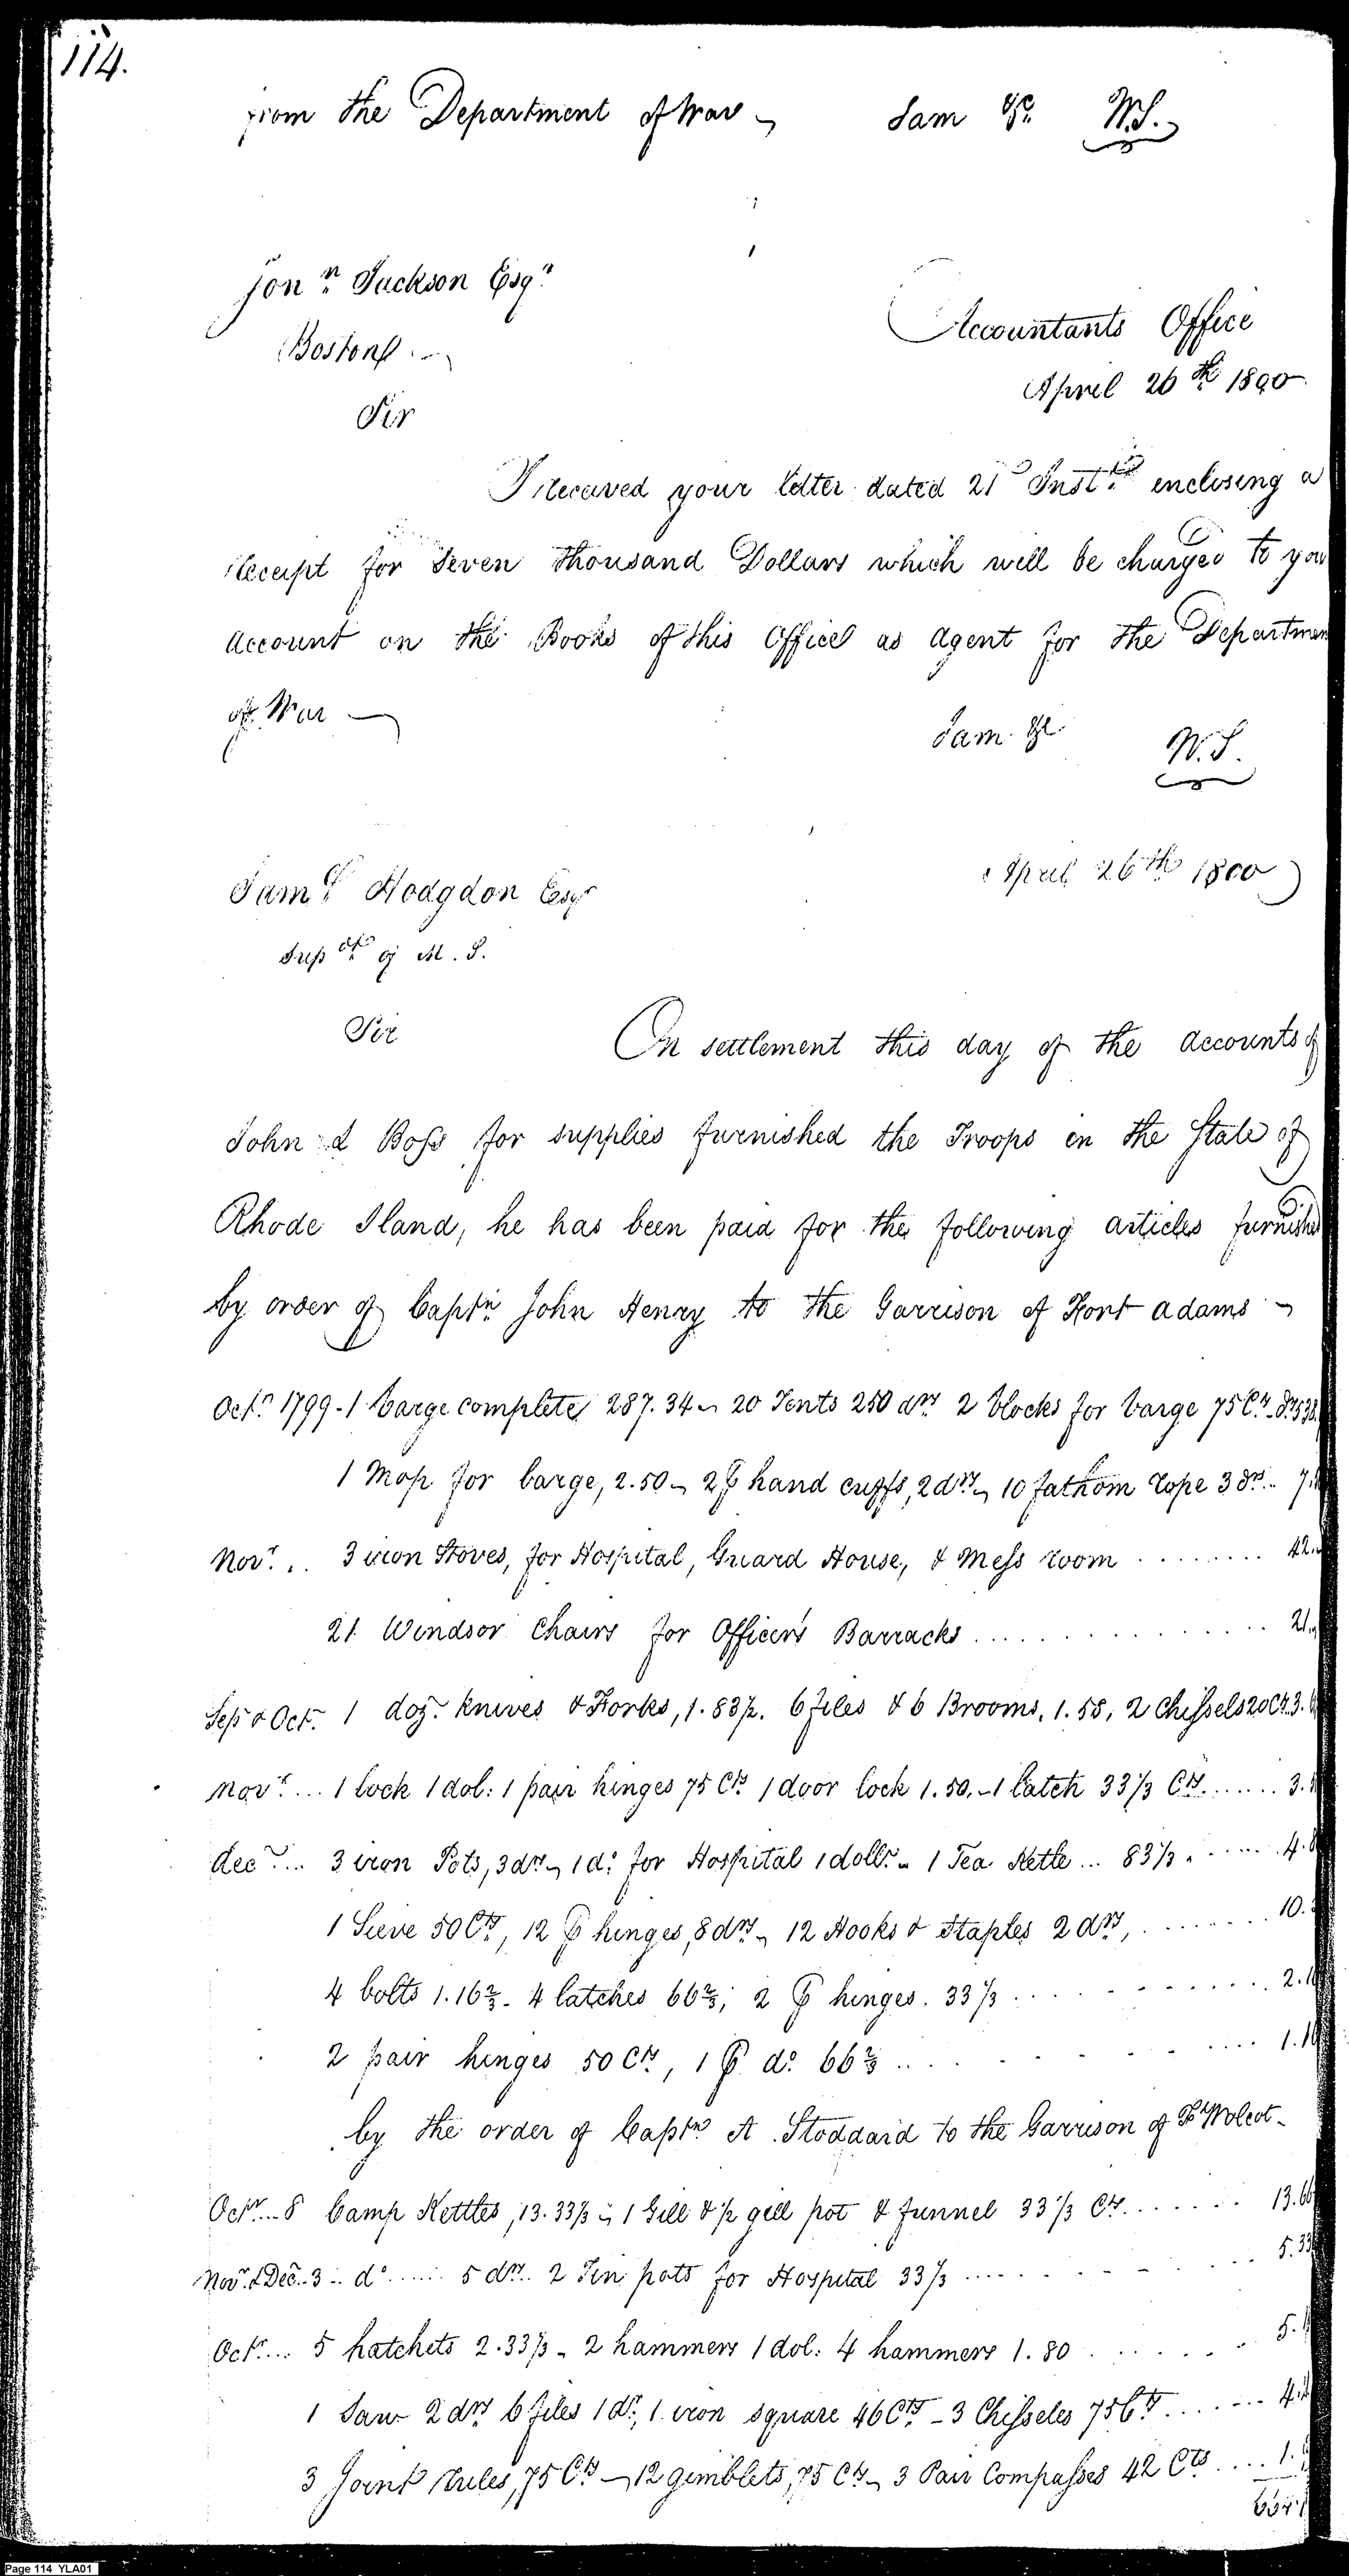 114.
from the Department of War
I am &c. W.S.
Jonn. Jackson Esqr.
Boston
Accountants Office
April 26th 1800
Sir
I received your letter dated 21st Inst. enclosing a
receipt for Seven thousand Dollars which will be charged to your
account on the Books of this Office as agent for the Departmen
of War
I am &c.
W.S.
April 26th 1800
Saml. Hodgdon Esqr
Supt. of M. S.
Sir
On settlement this day of the accounts of
John L Boss for supplies furnished the Troops in the State of
Rhode Iland, he has been paid for the following articles furnished
by order of Captn. John Henry to the Garrison of Fort adams
Octr. 1799 - 1 barge complete 287.34 - 20 Tents 250 drs. 2 blocks for barge 75 Cts.
1 Mop for barge, 2.50 - 2 p hand cuffs, 2 drs. - 10 fathom rope 3 ds.
Novr. .. 3 iron Stoves, for Hospital, Guard House, & Mess room ........ 42
21 Windsor Chairs for Officer's Barracks ............... 21
Sep & Oct. 1 doz. knives & Forks, 1.83½. 6 files & 6 Brooms, 1.58, 2 Chissels 20 Cts. 3.
Novr. ... 1 lock 1 dol: 1 pair hinges 75 Cts. 1 door lock 1.50. - 1 latch 33⅓ Cts. ...... 3.
decr. ... 3 iron Pots, 3 drs. - 1 do. for Hospital 1 dollr. - 1 Tea Kettle ... 83⅓ ...... 4.8
1 Sieve 50 Cts., 12 p hinges, 8 drs. - 12 Hooks & Staples 2 drs, ....... 10.
4 bolts 1.16⅔ - 4 latches 66⅔; 2 p hinges. 33⅓ ......... 2.16
2 pair hinges 50 Cts, 1 p do. 66⅔ ......... 1.16
by the order of Captn. A. Stoddard to the Garrison of Ft Wolcot -
Octr. ... 8 Camp Kettles, 13.33⅓ - 1 Gill & ½ gill pot & funnel 33⅓ Cts. ...... 13.66
Novr. & Dec. .. 3 .. do. ..... 5 drs. .. 2 Tin pots for Hospital 33⅓ ......... 5.33
Octr. ... 5 hatchets 2.33⅓ - 2 hammers 1 dol: 4 hammers 1.80 ....... 5.1
1 Saw 2 drs 6 files 1 dr, 1 iron square 46 Cts. - 3 Chisseles 75 Cts. ...... 4.2
3 Joint rules, 75 Cts - 12 gimblets, 75 Cts - 3 Pair Compasses 42 Cts .... 1.